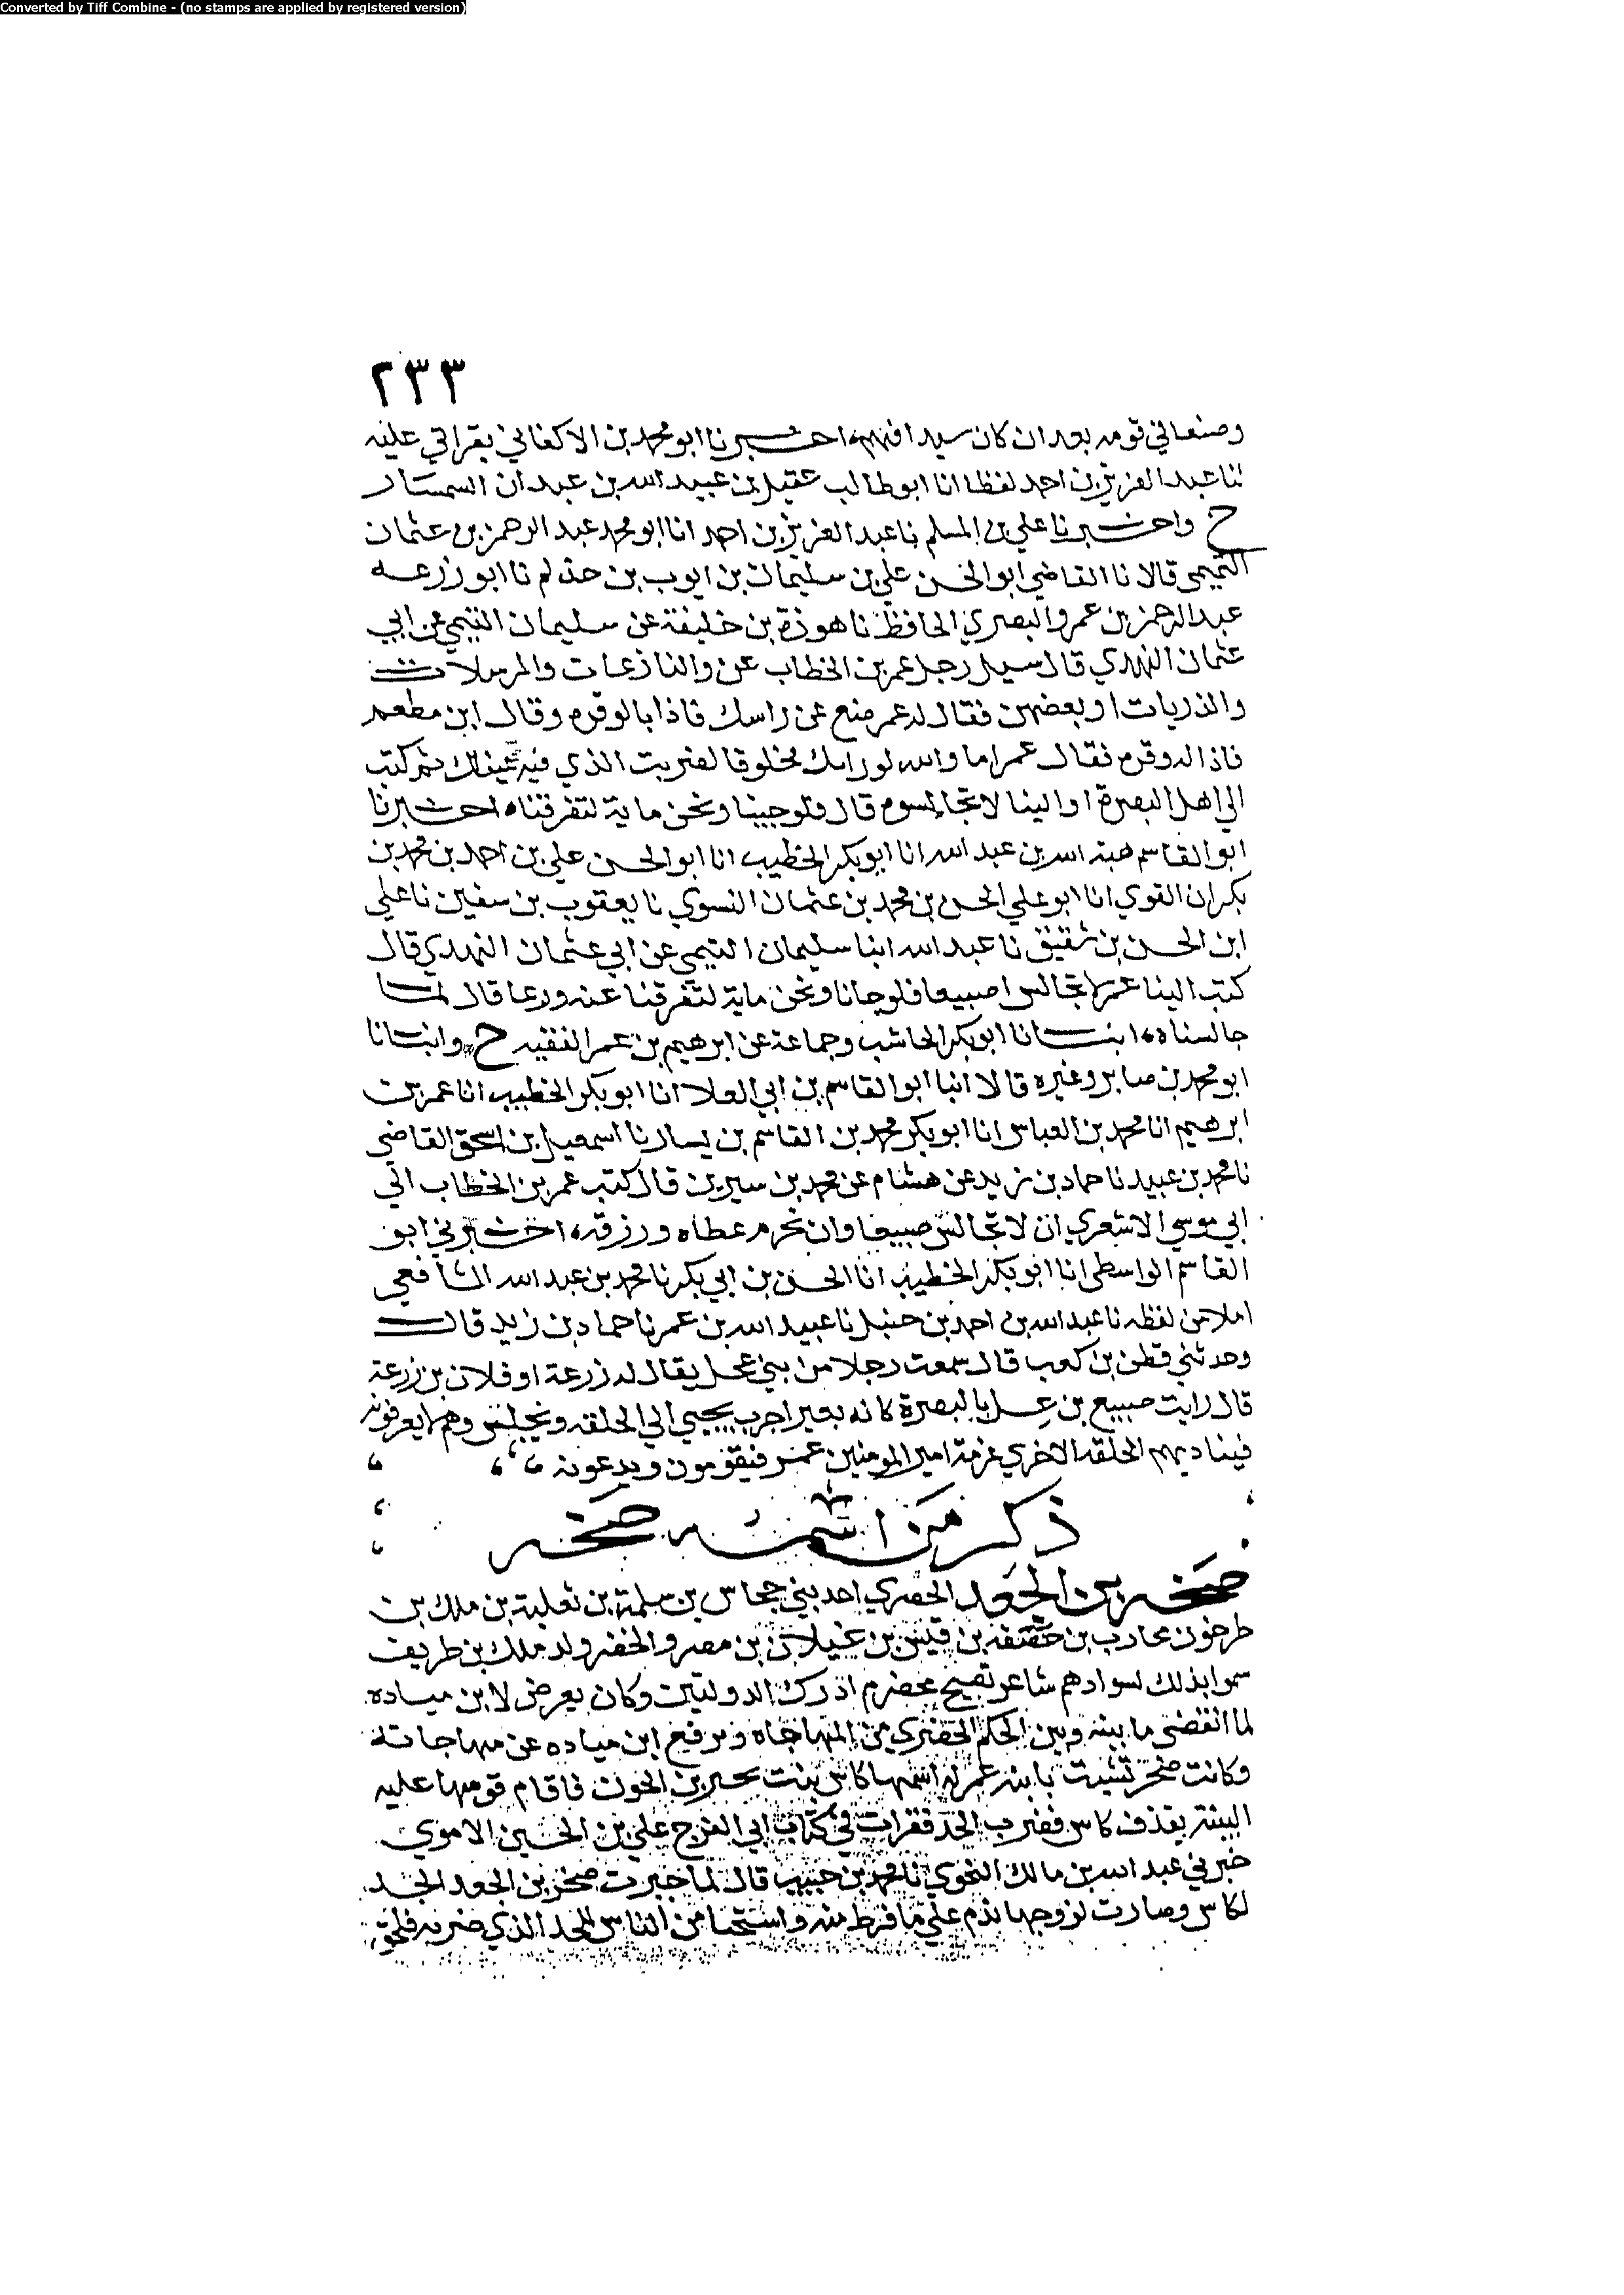 Converted by Tiff Combine - (no stamps are applied by registered version)
٢٣٣
وضعافي قومه بعد ان كان سيدا فيهم، اخبرنا ابو محمد بن الاكفاني بقراتي عليه
ثنا عبد العزيز بن احمد لفظا انا ابو طالب عقيل بن عبيد الله بن عبدان السمسار
ح واخبرنا علي بن المسلم نا عبد العزيز بن احمد انا ابو محمد عبد الرحمن بن عثمان
التميمي قالا نا القاضي ابو الحسن علي بن سليمان بن ايوب بن حذلم نا ابو زرعه
عبد الرحمن بن عمرو البصري الحافظ نا هوذة بن خليفة عن سليمان التيمي عن ابي
عثمان النهدي قال سيل رجل عمر بن الخطاب عن والنازعات والمرسلات
والذريات او بعضهن فقال له عمر ضع عن راسك فاذا بالوفره وقال ابن مطعم
فاذا له وفره فقال عمر اما والله لو رايتك محلوقا لضربت الذي فيه عيناك ثم كتب
الي اهل البصرة او الينا لا تجالسوه قال فلو جينا ونحن ماية لتفرقناه اخبرنا
ابو القاسم هبة الله بن عبد الله انا ابو بكر الخطيب انا ابو الحسن علي بن احمد بن محمد بن
بكران القوي انا ابو علي الحسن بن محمد بن عثمان النسوي نا يعقوب بن سفين نا علي
ابن الحسن بن شقيق نا عبد الله ابنا سليمان التيمي عن ابي عثمان النهدي قال
كتب الينا عمر لا تجالس اصبيعا فلو جانا ونحن ماية لتفرقنا عنه ورعا قال لما
جالسناه، انبانا ابو بكر الحاسب وجماعة عن ابرهيم بن عمر الفقيه ح وانبانا
ابو محمد بن صابر وغيره قالا انبا ابو القاسم بن ابي العلا انا ابو بكر الخطيب انا عمر بن
ابرهيم انا محمد بن العباس انا ابو بكر محمد بن القاسم بن يسار نا اسمعيل بن اسحق القاضي
نا محمد بن عبيد نا حماد بن زيد عن هشام عن محمد بن سيرين قال كتب عمر بن الخطاب الي
ابي موسي الاشعري ان لا تجالس صبيعا وان تحرم عطاه ورزقه، اخبرني ابو
القاسم الواسطي انا ابو بكر الخطيب انا الحسن بن ابي بكر نا محمد بن عبد الله الشافعي
املا من لفظه نا عبد الله بن احمد بن حنبل نا عبيد الله بن عمر نا حماد بن زيد قال
وحدثني قطن بن كعب قال سمعت رجلا من بني عجل يقال له زرعة او فلان بن زرعة
قال رايت صبيع بن عسل بالبصرة كانه بعير اجرب يجيي الي الحلقه ويجلس وهم لا يعرفونه
فيناديهم الحلقه الاخري عزمة امير المومنين عمر فيقومون ويدعونه
ذكر من اسمه صخر
صخر بن الجعد الخضري احد بني جحاس بن سلمة بن ثعلبة بن ملك بن
طرخون محارب بن خصفه بن قيس بن عيلان بن مضر والخضر ولد ملك بن طريف
سموا بذلك لسوادهم شاعر فصيح مخضرم ادرك الدولتين وكان يعرض لابن مياده
لما انقضي ما بينه وبين الحكم الخضري من المهاجاه وترفع ابن مياده عن مهاجاته
وكانت صخر تشبت بابنة عم له اسمها كاس بنت بحير بن الخون فاقام قومها عليه
البينة بقذف كاس فضرب الحد فقرات في كتاب ابي الفرج علي بن الحسين الاموي
خبرني عبد الله بن مالك النحوي نا محمد بن حبيب قال لما ضربت صخر بن الجعد الحد
لكاس وصارت لزوجها ندم علي ما فرط منه واستحيا من الناس للحد الذي ضربه فلحق